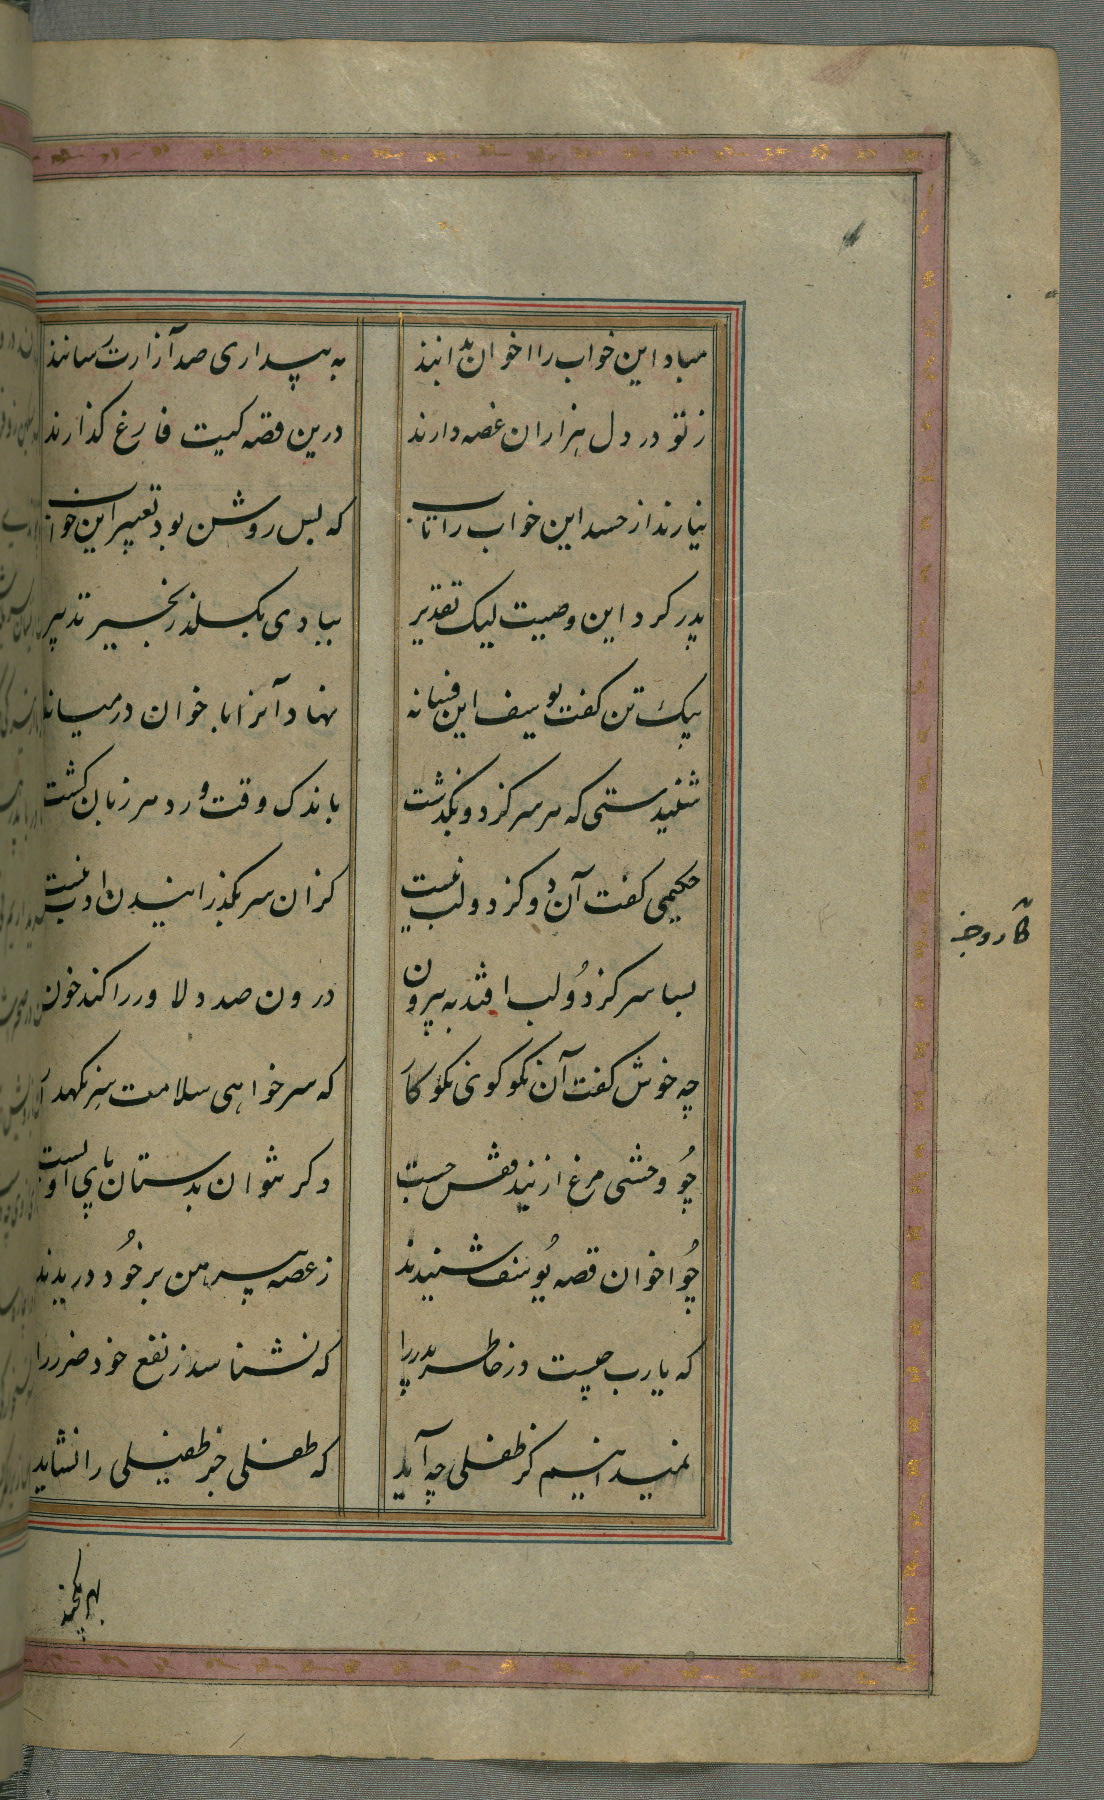 مباد این خواب را اخوان بدانند به بیداری صد آزارت رسانند
ز تو در دل هزاران غصه دارند درین قصه کیت فارغ گذارند
نیارند از حسد این خواب را تاب که بس روشن بود تعبیر این خواب
پدر کرد این وصیت لیک تقدیر ببادی بگسلد زنجیر تدبیر
بیک تن گفت یوسف این فسانه نهاد آنرا باخوان درمیانه
شنیدستی که هر سر کز دو بگذشت باندک وقت ورد هر زبان گشت
حکیمی گفت آن دو کز دو لب نیست کزان سر بگذرانیدن ادب نیست
بسا سر کز دو لب افتد به بیرون درون صد دلاور را کند خون
چه خوش گفت آن نکو گوی نکو کار که سر خواهی سلامت سر نگهدار
چو وحشی مرغ از بند قفس جست دگر نتوان بدستان پای او بست
چو اخوان قصه یوسف شنیدند ز غصه پیرهن بر خود دریدند
که یارب چیست در خاطر پدر را که نشناسد ز نفع خود ضرر را
نمیدانیم کز طفلی چه آید که طفلی جز طفیلی را نشاید